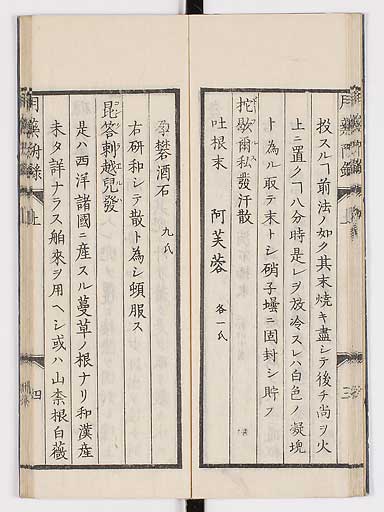 投スルヿ前法ノ如ク其末焼キ盡シテ後チ尚ヲ火
上ニ置クヿ八分時是レヲ放冷スレハ白色ノ凝塊
ト為ル取テ末トシ硝子壜ニ固封シ貯フ
陀歇爾私發汗散
吐根末 阿芙蓉 各一氏
孕礬酒石 九氏
右研和シテ散ト為シ頓服ス
昆答剌越兒發
是ハ西洋諸國ニ産スル蔓草ノ根ナリ和漢産
未タ詳ナラス舶來ヲ用ヘシ或ハ山柰根白薇
附錄 上
四